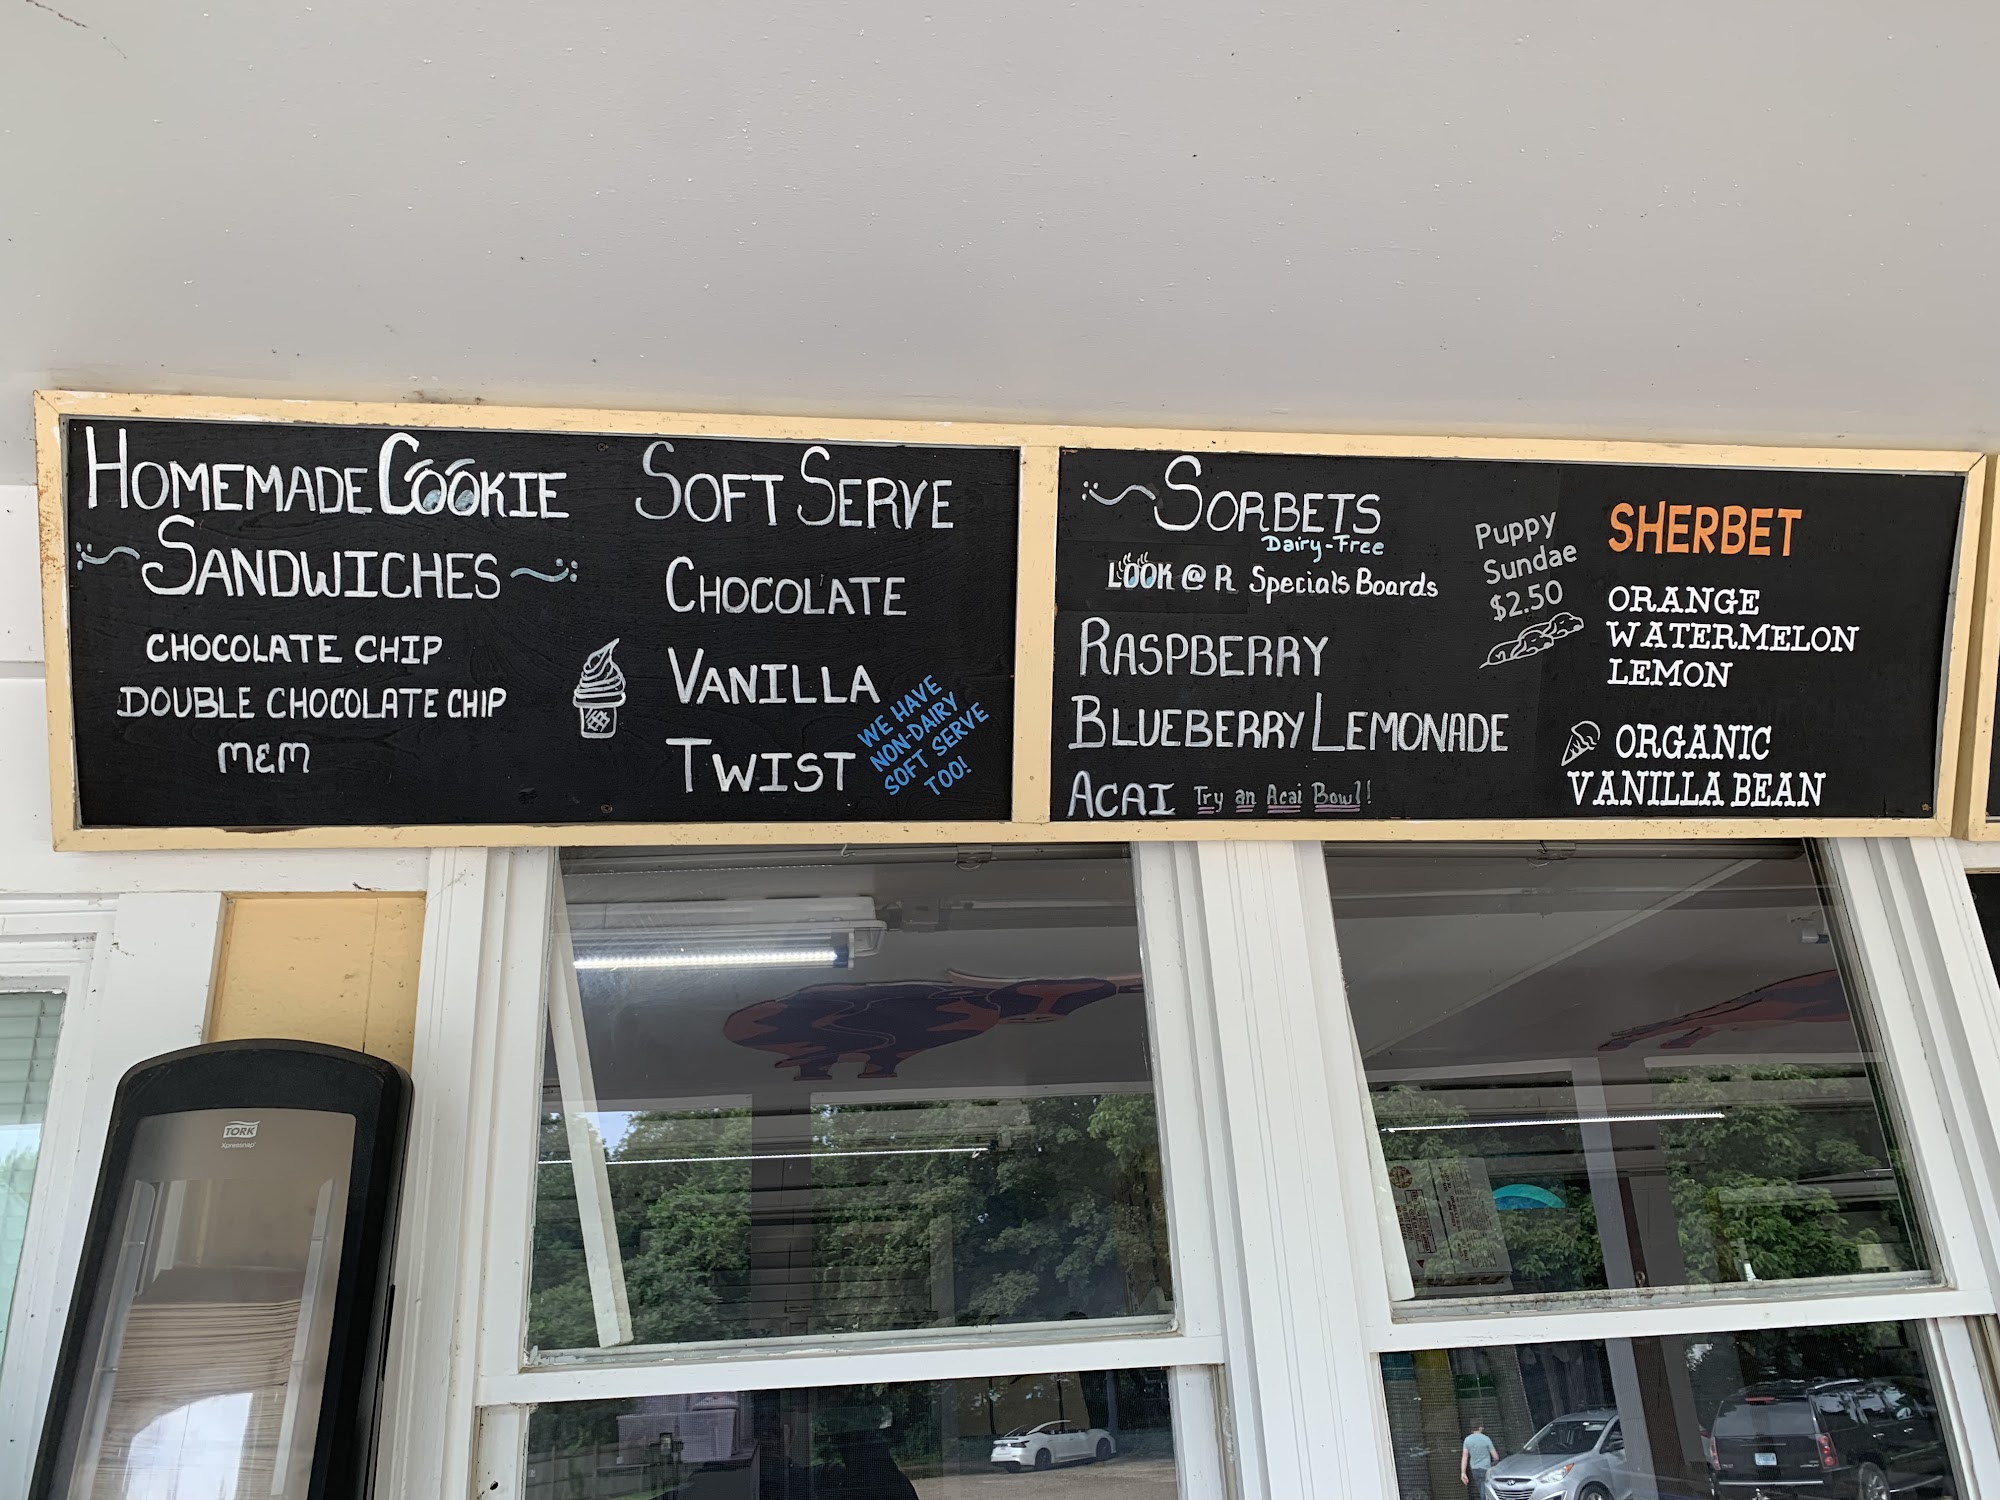 HOMEMADE COOKIE
SANDWICHES
CHOCOLATE CHIP
DOUBLE CHOCOLATE CHIP
M&M
SOFT SERVE
CHOCOLATE
VANILLA
TWIST
WE HAVE
NON-DAIRY
SOFT SERVE
TOO!
SORBETS
Dairy-Free
LOOK @ R Specials Boards
RASPBERRY
BLUEBERRY LEMONADE
ACAI Try an Acai Bowl!
Puppy
Sundae
$2.50
SHERBET
ORANGE
WATERMELON
LEMON
ORGANIC
VANILLA BEAN
TORK
Xpressnap